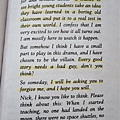 or bright young students take an idea
they have mastered in a boring old
classroom and put it to a real test in
their own world. I confess that I am
very excited to see how it all turns out.
I am mostly here to watch it happen.
But somehow I think I have a small
part to play in this drama, and I have
chosen to be the villain. Every good
story needs a bad guy, don't you
think?
So someday, I will be asking you to
forgive me, and I hope you will.
Nick, I know you like to think. Please
think about this. When I started
teaching, no one had landed on the
moon, there were no space shuttles,